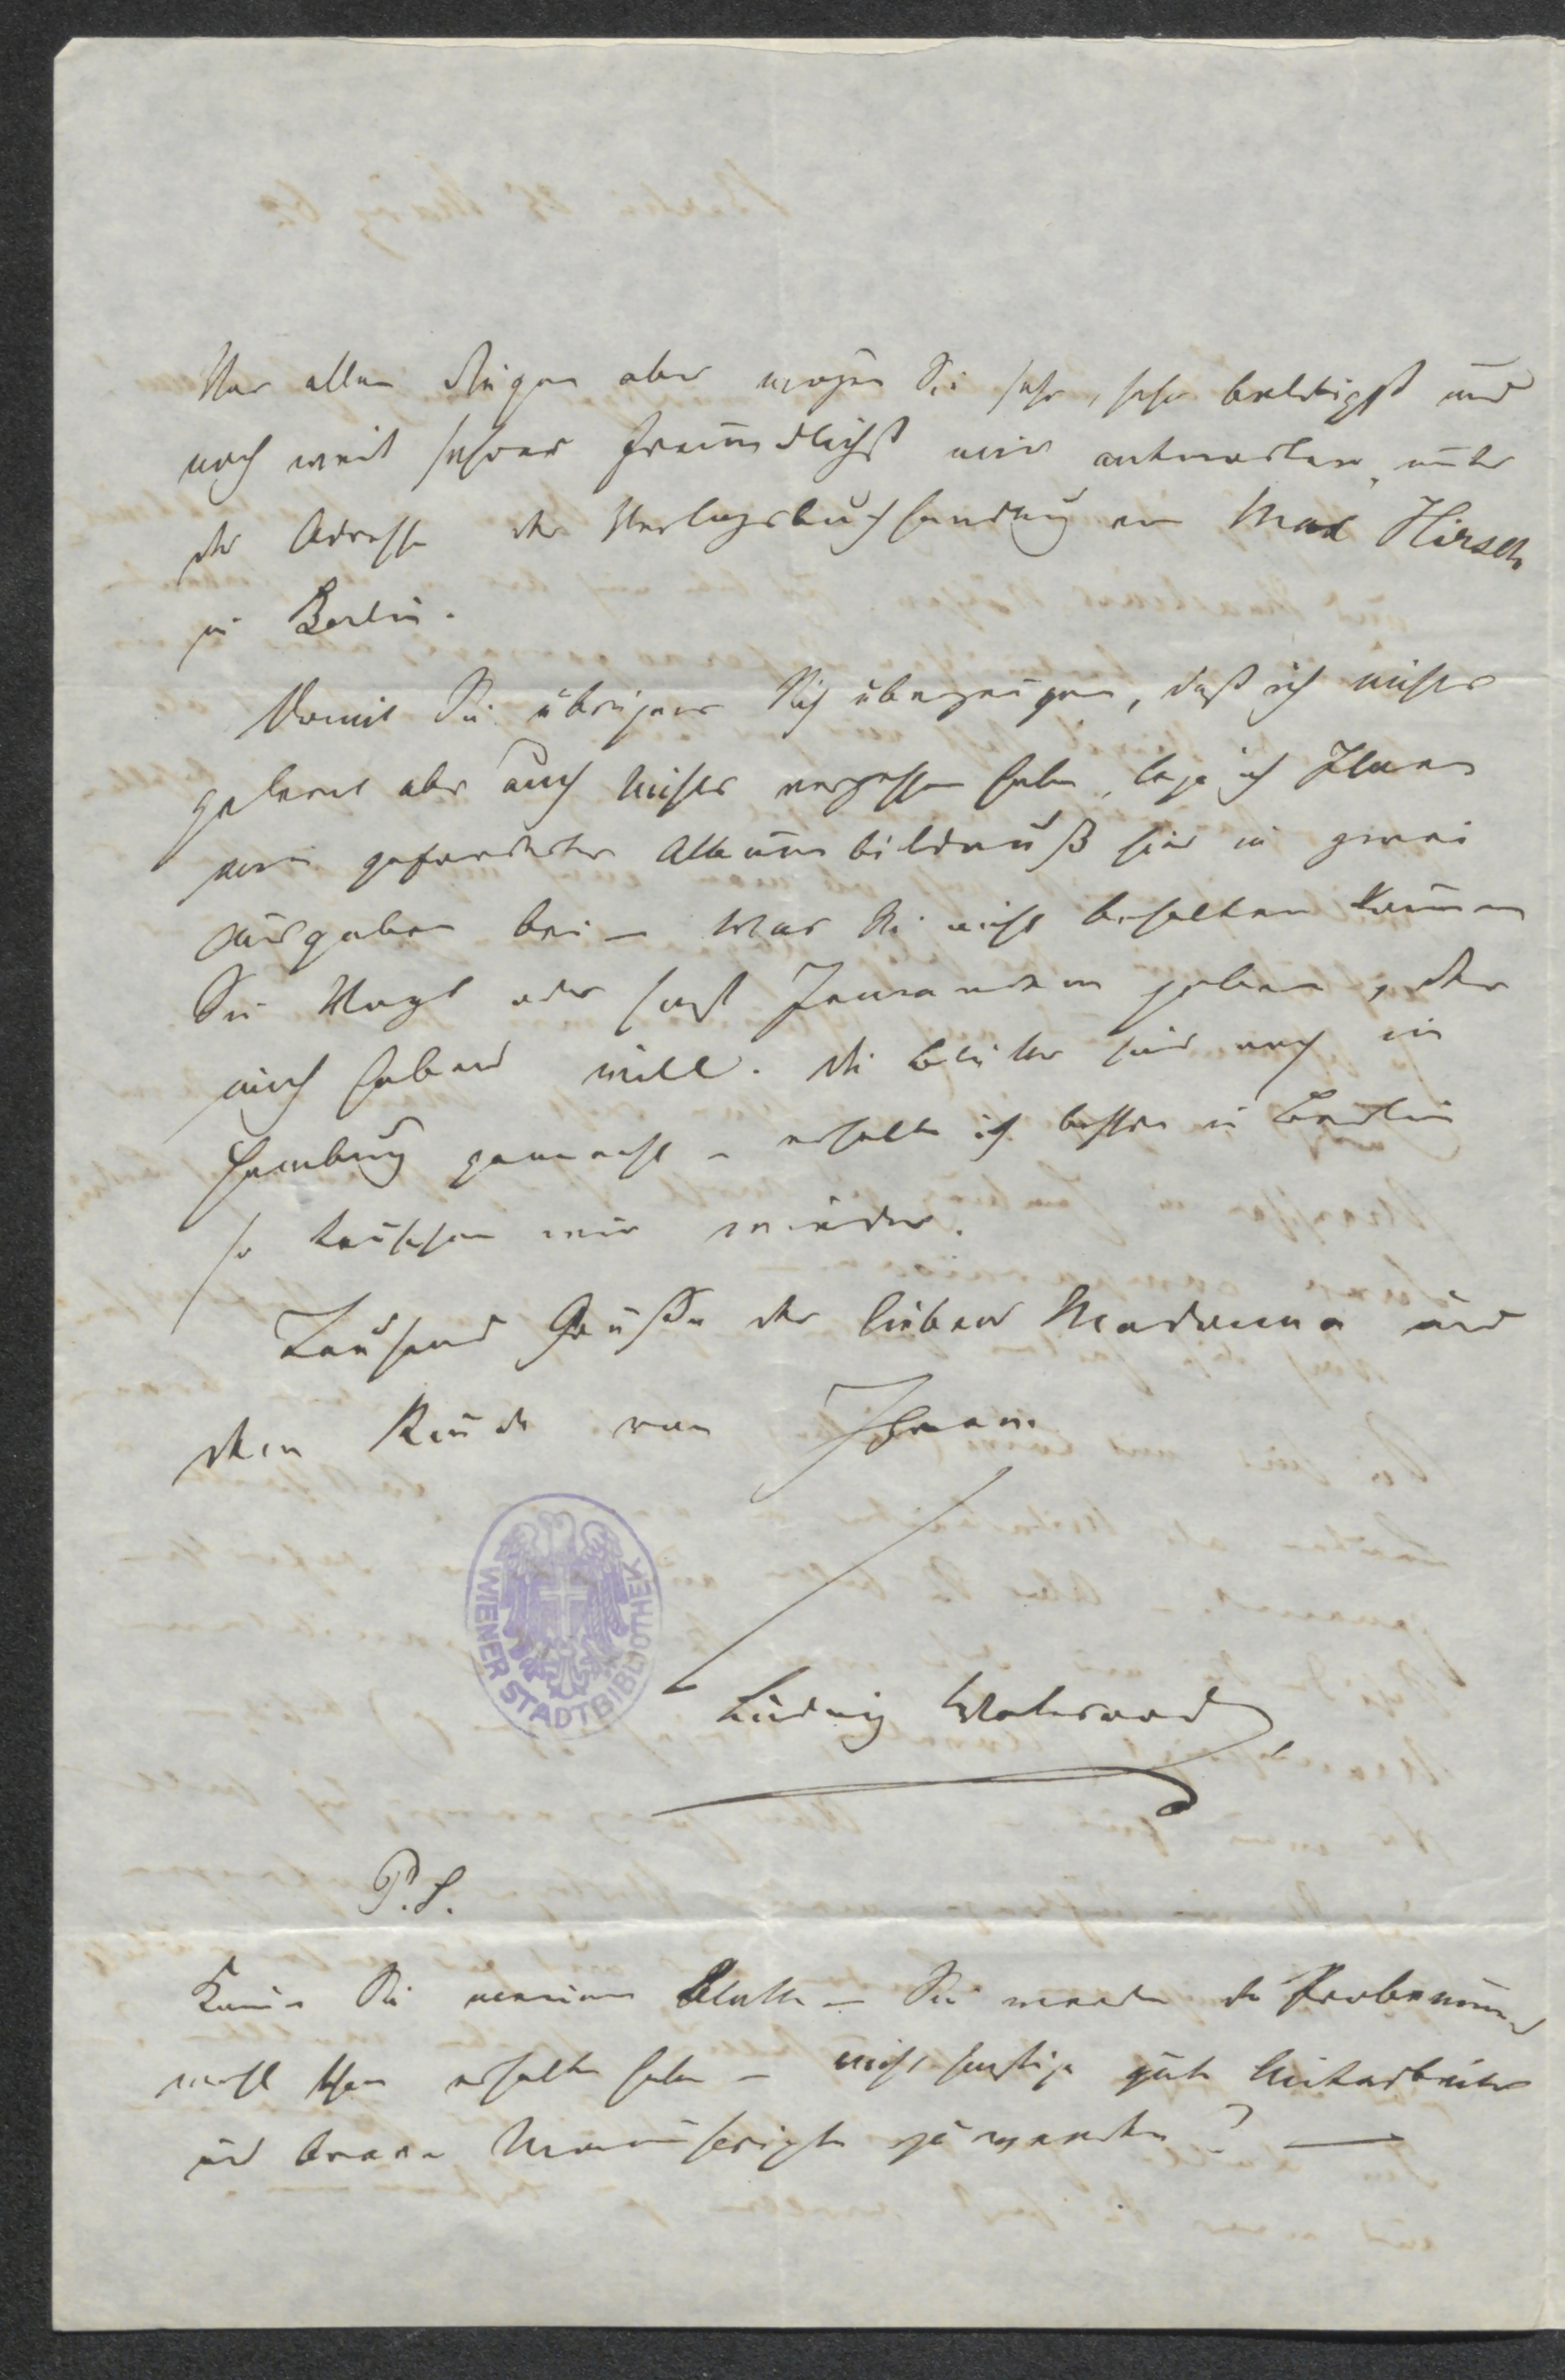 Vor allen Dingen aber mögen Sie sehr, sehr baldigst und
noch weit sehrer freundlichst mir antworten, unter
der Adresse der Verlagsbuchhandlung von Max Hirsch
in Berlin.
Damit Sie übrigens Sich überzeugen, daß ich nichts
gelernt aber auch nichts vergessen habe, lege ich Ihnen
mein gefordertes Albumbildnuß hier in zwei
Ausgaben bei – was Sie nicht behalten können
Sie Vogl oder sonst Jemandem geben, der
mich haben will. Die Bilder sind noch in
Hamburg gemacht – erhalte ich bessere in Berlin
so tauschen wir wieder.
Tausend Grüße der lieben Madonna und
dem Kinde von Ihrem
Ludwig Walesrode
WIENER STADTBIBLIOTHEK
P.S.
Können Sie meinem Blatte – Sie werden die Probenummer
wohl schon erhalten haben – nicht sonstige gute Mitarbeiter
und brave Manuscripte zuwenden? —